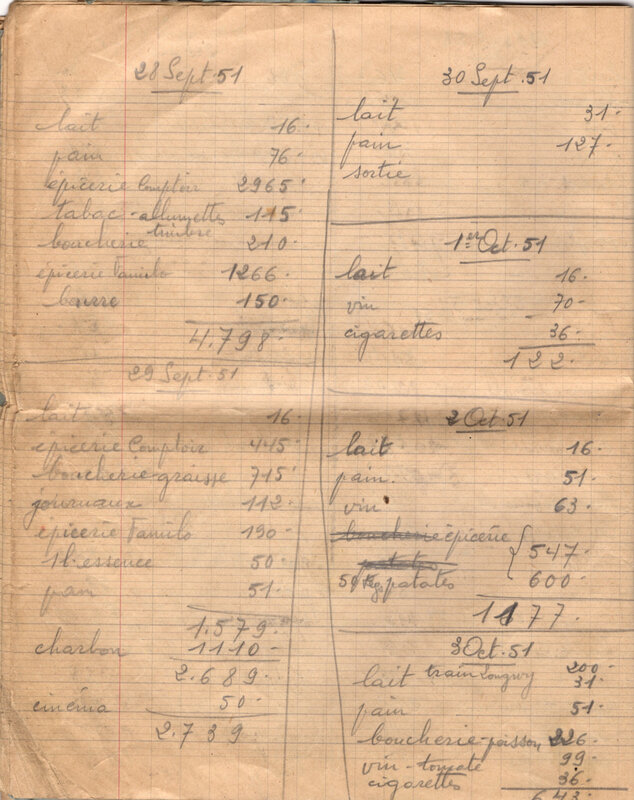 28 Sept. 51
lait 16.
pain 76.
épicerie Comptoir 2965.
tabac - allumettes timbre 115
boucherie 210.
épicerie Familo 1266.
beurre 150.
4.798.
29 Sept. 51
lait 16
épicerie Comptoir 445.
boucherie-graisse 715.
journaux 112.
épicerie Familo 190.
1l. essence 50.
pain 51.
1.579.
charbon 1110.
2.689.
cinéma 50.
2.739.
30 Sept. 51
lait 31.
pain 127.
sortie
1er Oct. 51
lait 16.
vin 70.
cigarettes 36.
122.
2 Oct. 51
lait 16.
pain. 51.
vin 63.
boucherie épicerie 547.
50 Kgs patates 600.
1177.
3 Oct. 51
train Longwy 200.
lait 31.
pain 51.
boucherie-poisson 226.
vin - tomate 99.
cigarettes 36.
643.